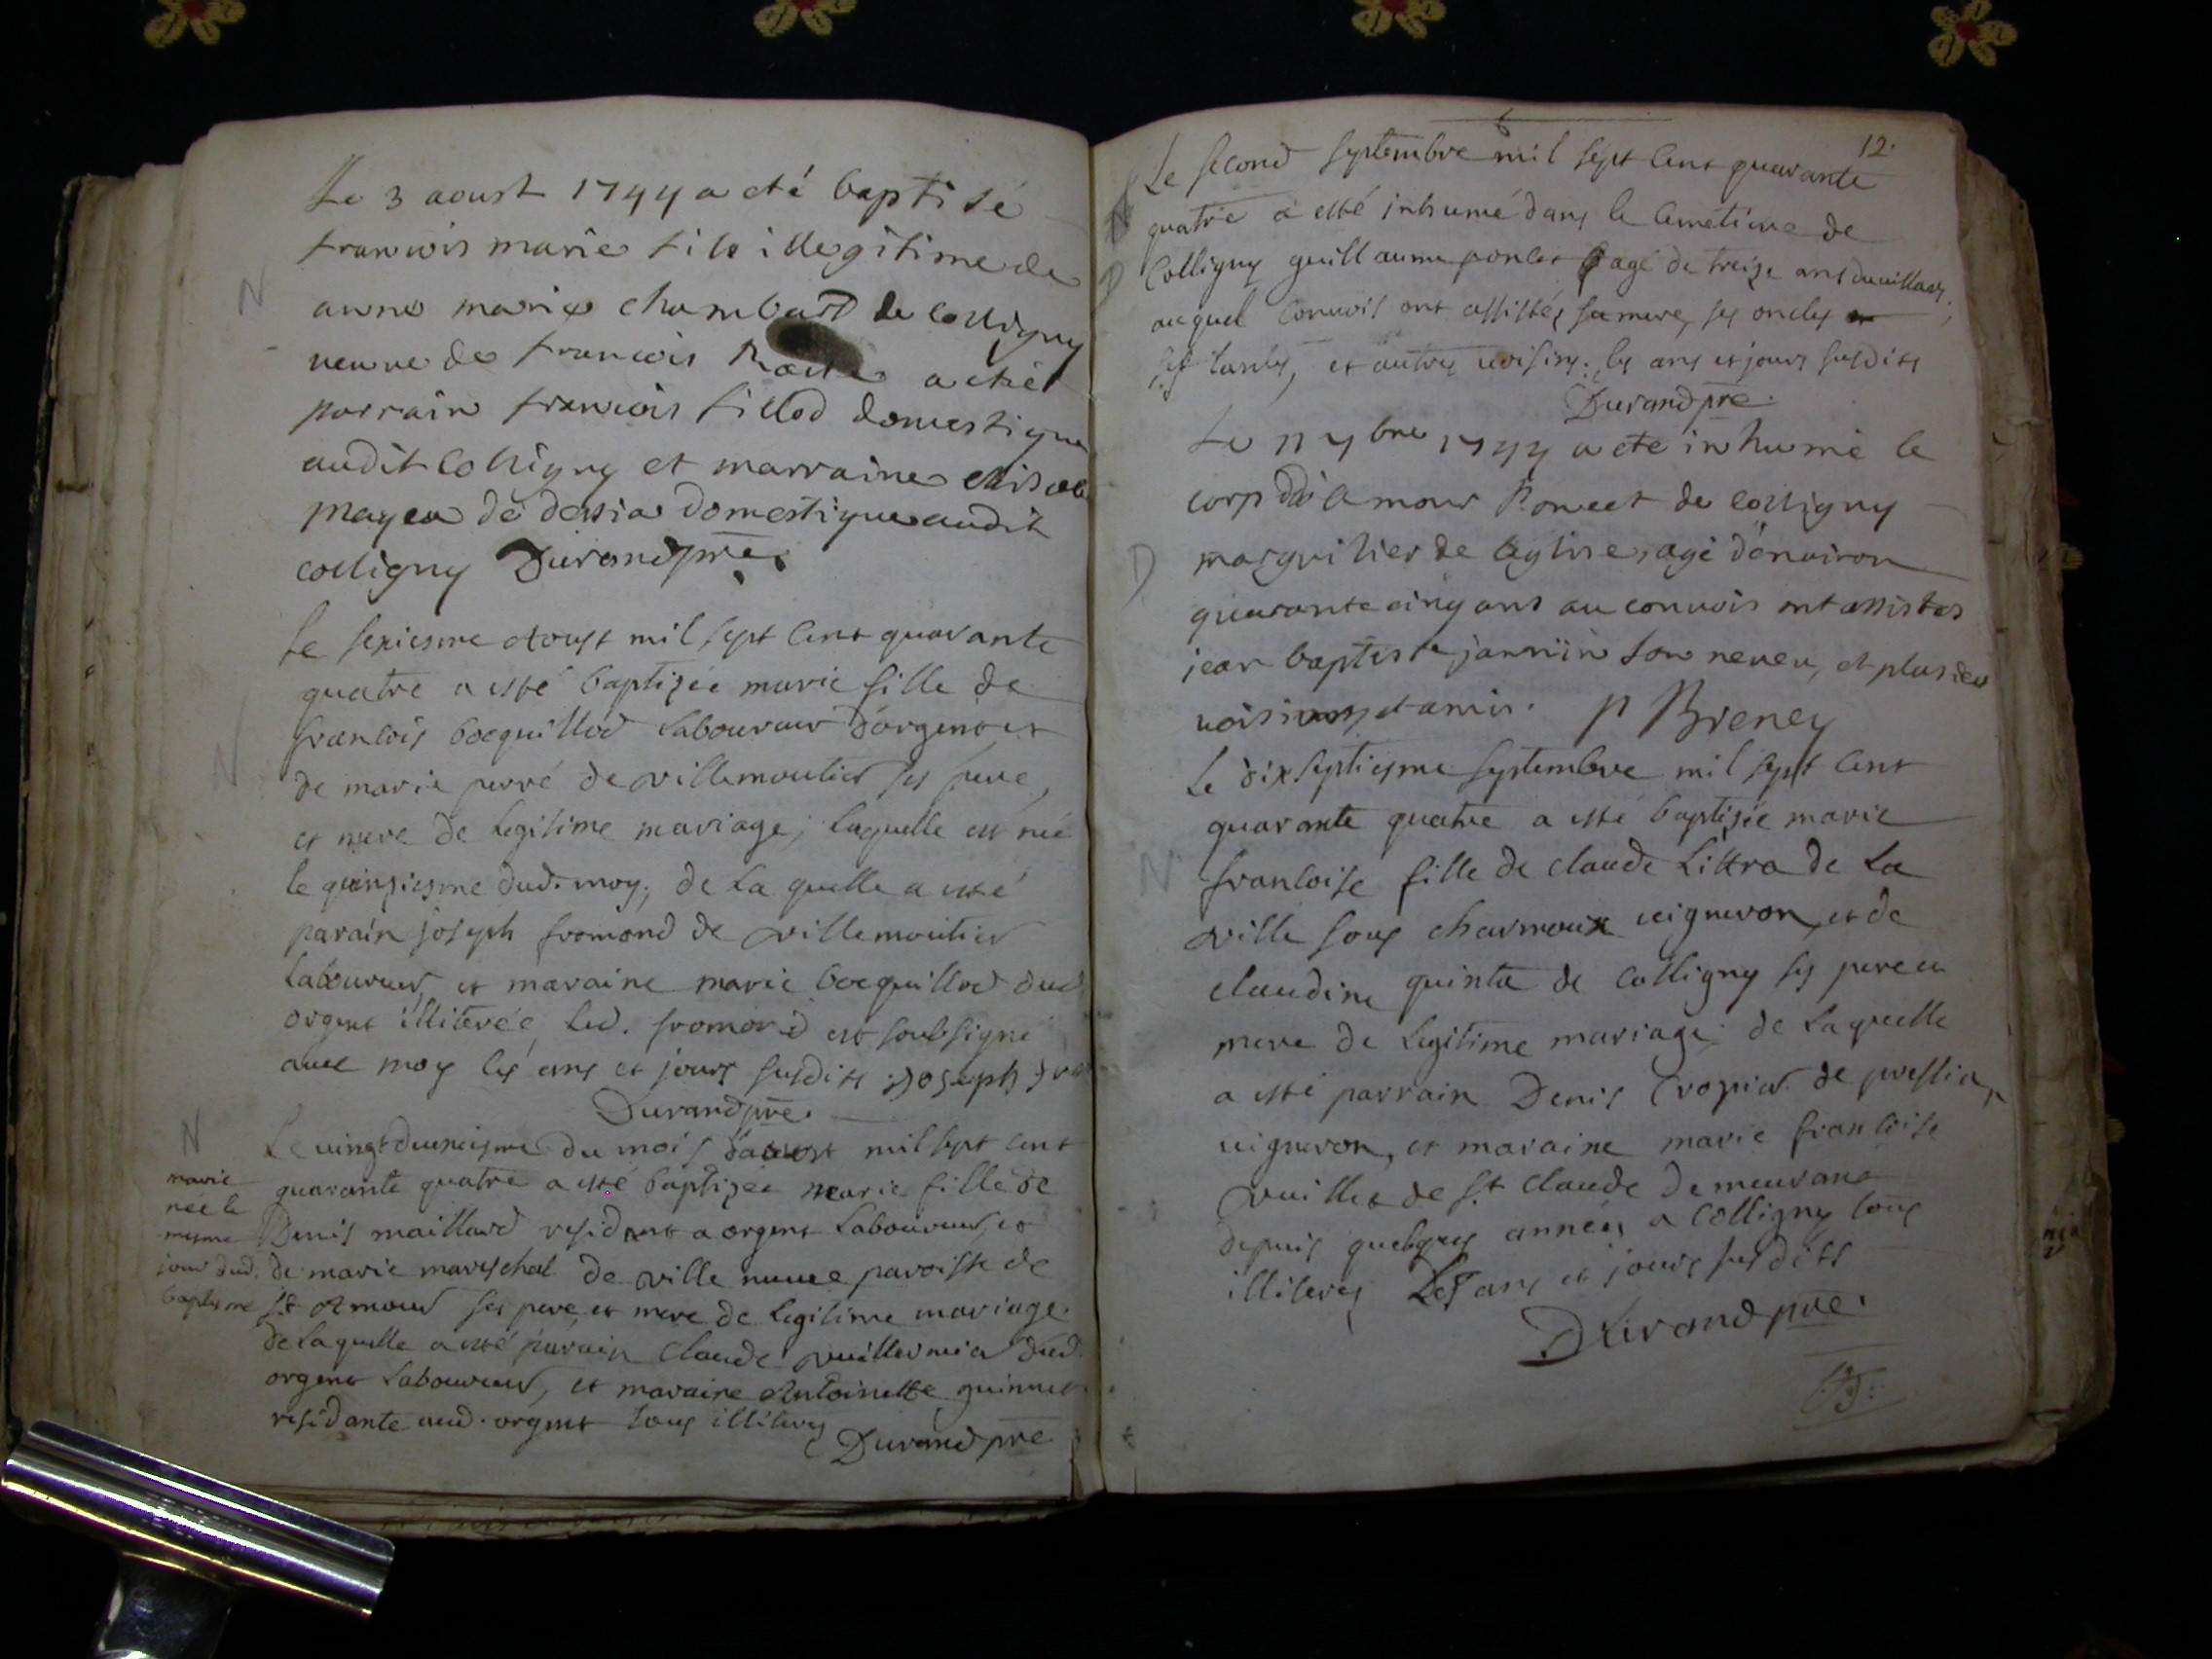 Le 3 aoust 1744 a eté baptisé
francois marie fils illegitime de
anne marie chambard de colligny
veuve de francois a eté
parrain francois fillod domestique
audit colligny et marraine
mayea de dessia domestique audit
colligny Durand pre.
N
Le sexiesme Aoust mil sept cent quarante
quatre a esté baptizée marie fille de
francois bocquillod laboureur d'orgent et
de marie perré de villemoutier ses pere,
et mere de legitime mariage; laquelle est née
le quinziesme dud. moy; de la quelle a esté
parain joseph fromond de villemoutier
laboureur, et maraine marie bocquillod dud.
orgent illiterée, led. fromond est soubsigné
avec moy les ans et jours susdits joseph
Durand pre.
N
N
marie
née le
mesme
jour dud.
baptesme
Le vingt du mois d'aoust mil sept cent
quarante quatre a esté baptizée marie fille de
Denis maillard resident a orgent laboureur, et
de marie mareschal de ville neuve paroisse de
St Amour ses pere, et mere de legitime mariage.
de laquelle a esté parain claude vuillermier dud.
orgent laboureur, et maraine Antoinette guinnet
residante aud. orgent tous illiteres
Durand pre
12.
Le second septembre mil sept cent quarante
quatre a esté inhumé dans le cemetiere de
Colligny guillaume poncet agé de treize ans
auquel convois ont assistés sa mere, ses oncles
ses tantes, et autres voisins. les ans et jours susdits
Durand pre.
D
Le 11 7bre 1744 a eté inhumé le
corp d'Amour Poncet de colligny
marguilier de l'eglise, agé d'environ
quarante cinq ans au convois ont assistes
jean baptiste jannin son neveu, et plusieu
voisins et amis. P Breney
D
Le dix septiesme septembre mil sept cent
quarante quatre a esté baptizée marie
francoise fille de claude Littra de La
ville sous charmoux vigneron, et de
claudine quinta de Colligny ses pere et
mere de legitime mariage; de Laquelle
a esté parrain Denis Cropier de pressia,
vigneron, et maraine marie francoise
vuillet de St claude demeurant
depuis quelques années a Colligny tous
illiteres Les ans et jours susdits
Durand pre.
N